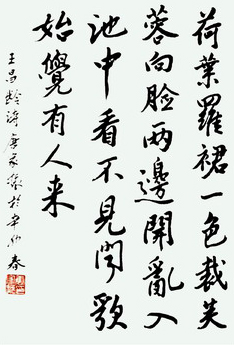 荷葉羅裙一色裁芙
蓉向臉兩邊開亂入
池中看不見聞歌
始覺有人来
王昌齡詩 於辛卯春